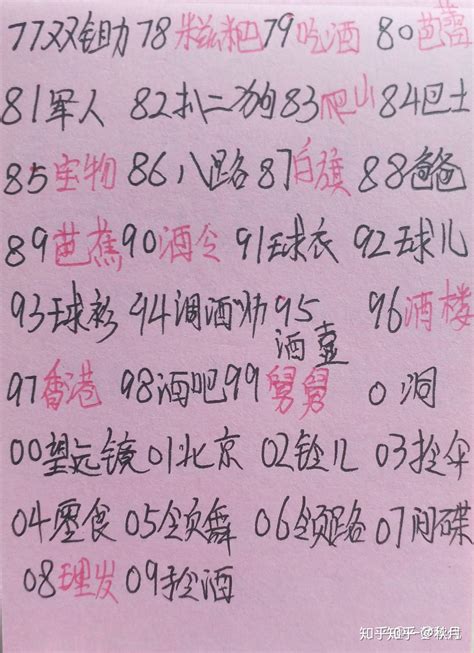 77双钼力 78粘粑 79吃酒 80芭蕾
81军人 82扒二狗 83爬山 84巴士
85宝物 86八路 87白旗 88爸爸
89芭蕉 90酒令 91球衣 92球儿
93球衫 94调酒师 95酒壶 96酒楼
97香港 98酒吧 99舅舅 0洞
00望远镜 01北京 02铃儿 03拎伞
04零食 05领舞 06领路 07间碟
08理发 09拎酒
知乎 @秋月